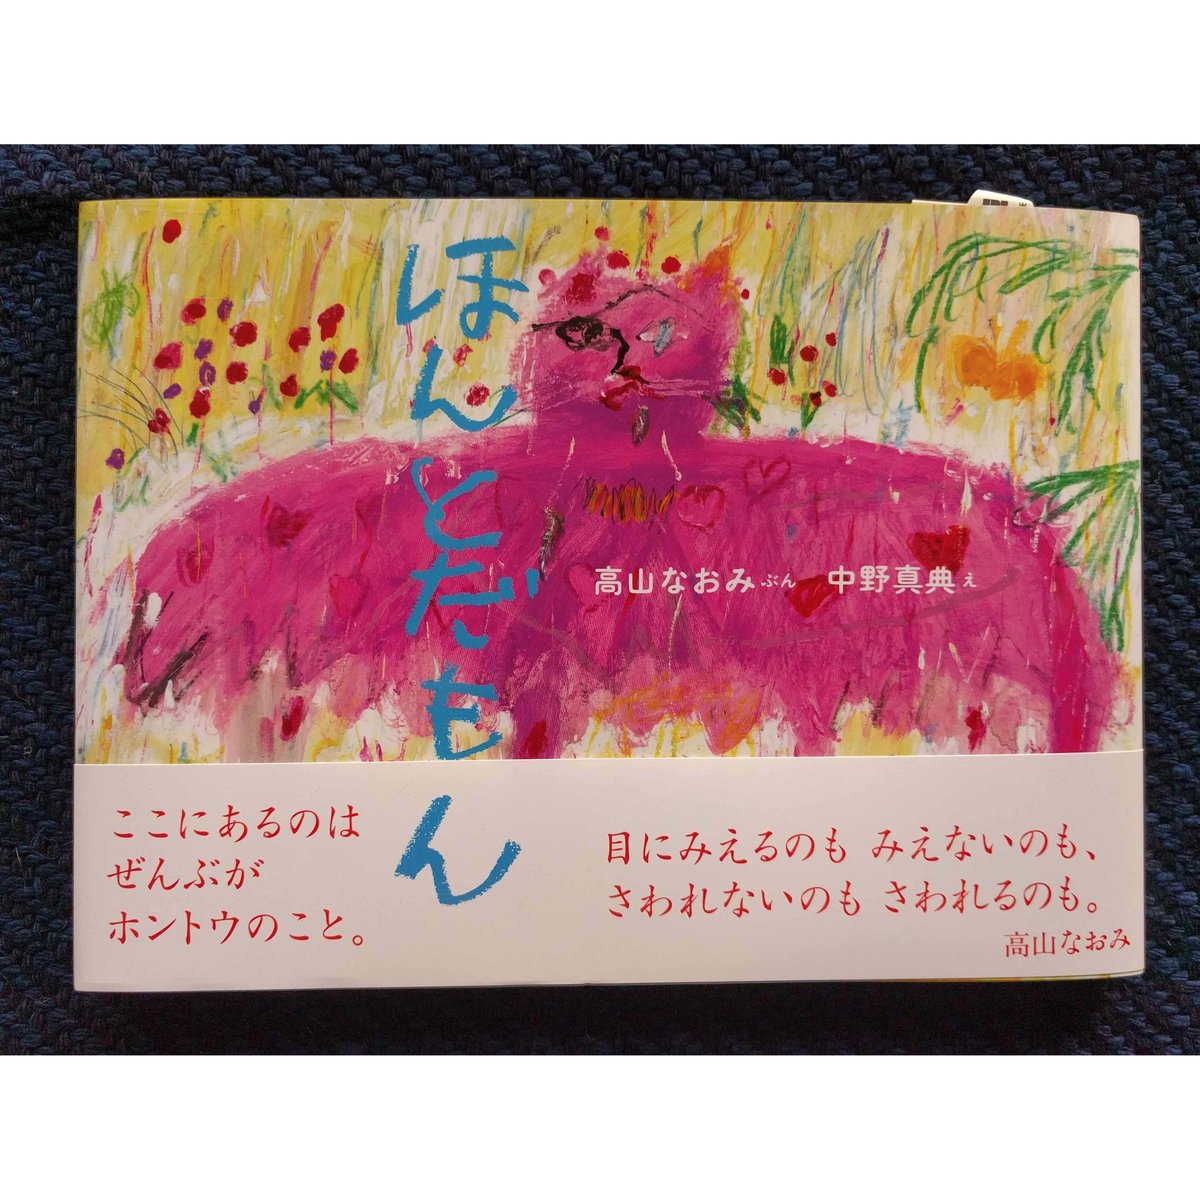 ほんとだもん
高山なおみ ぶん 中野真典 え
ここにあるのは
ぜんぶが
ホントウのこと。
目にみえるのも みえないのも、
さわれないのも さわれるのも。
高山なおみ